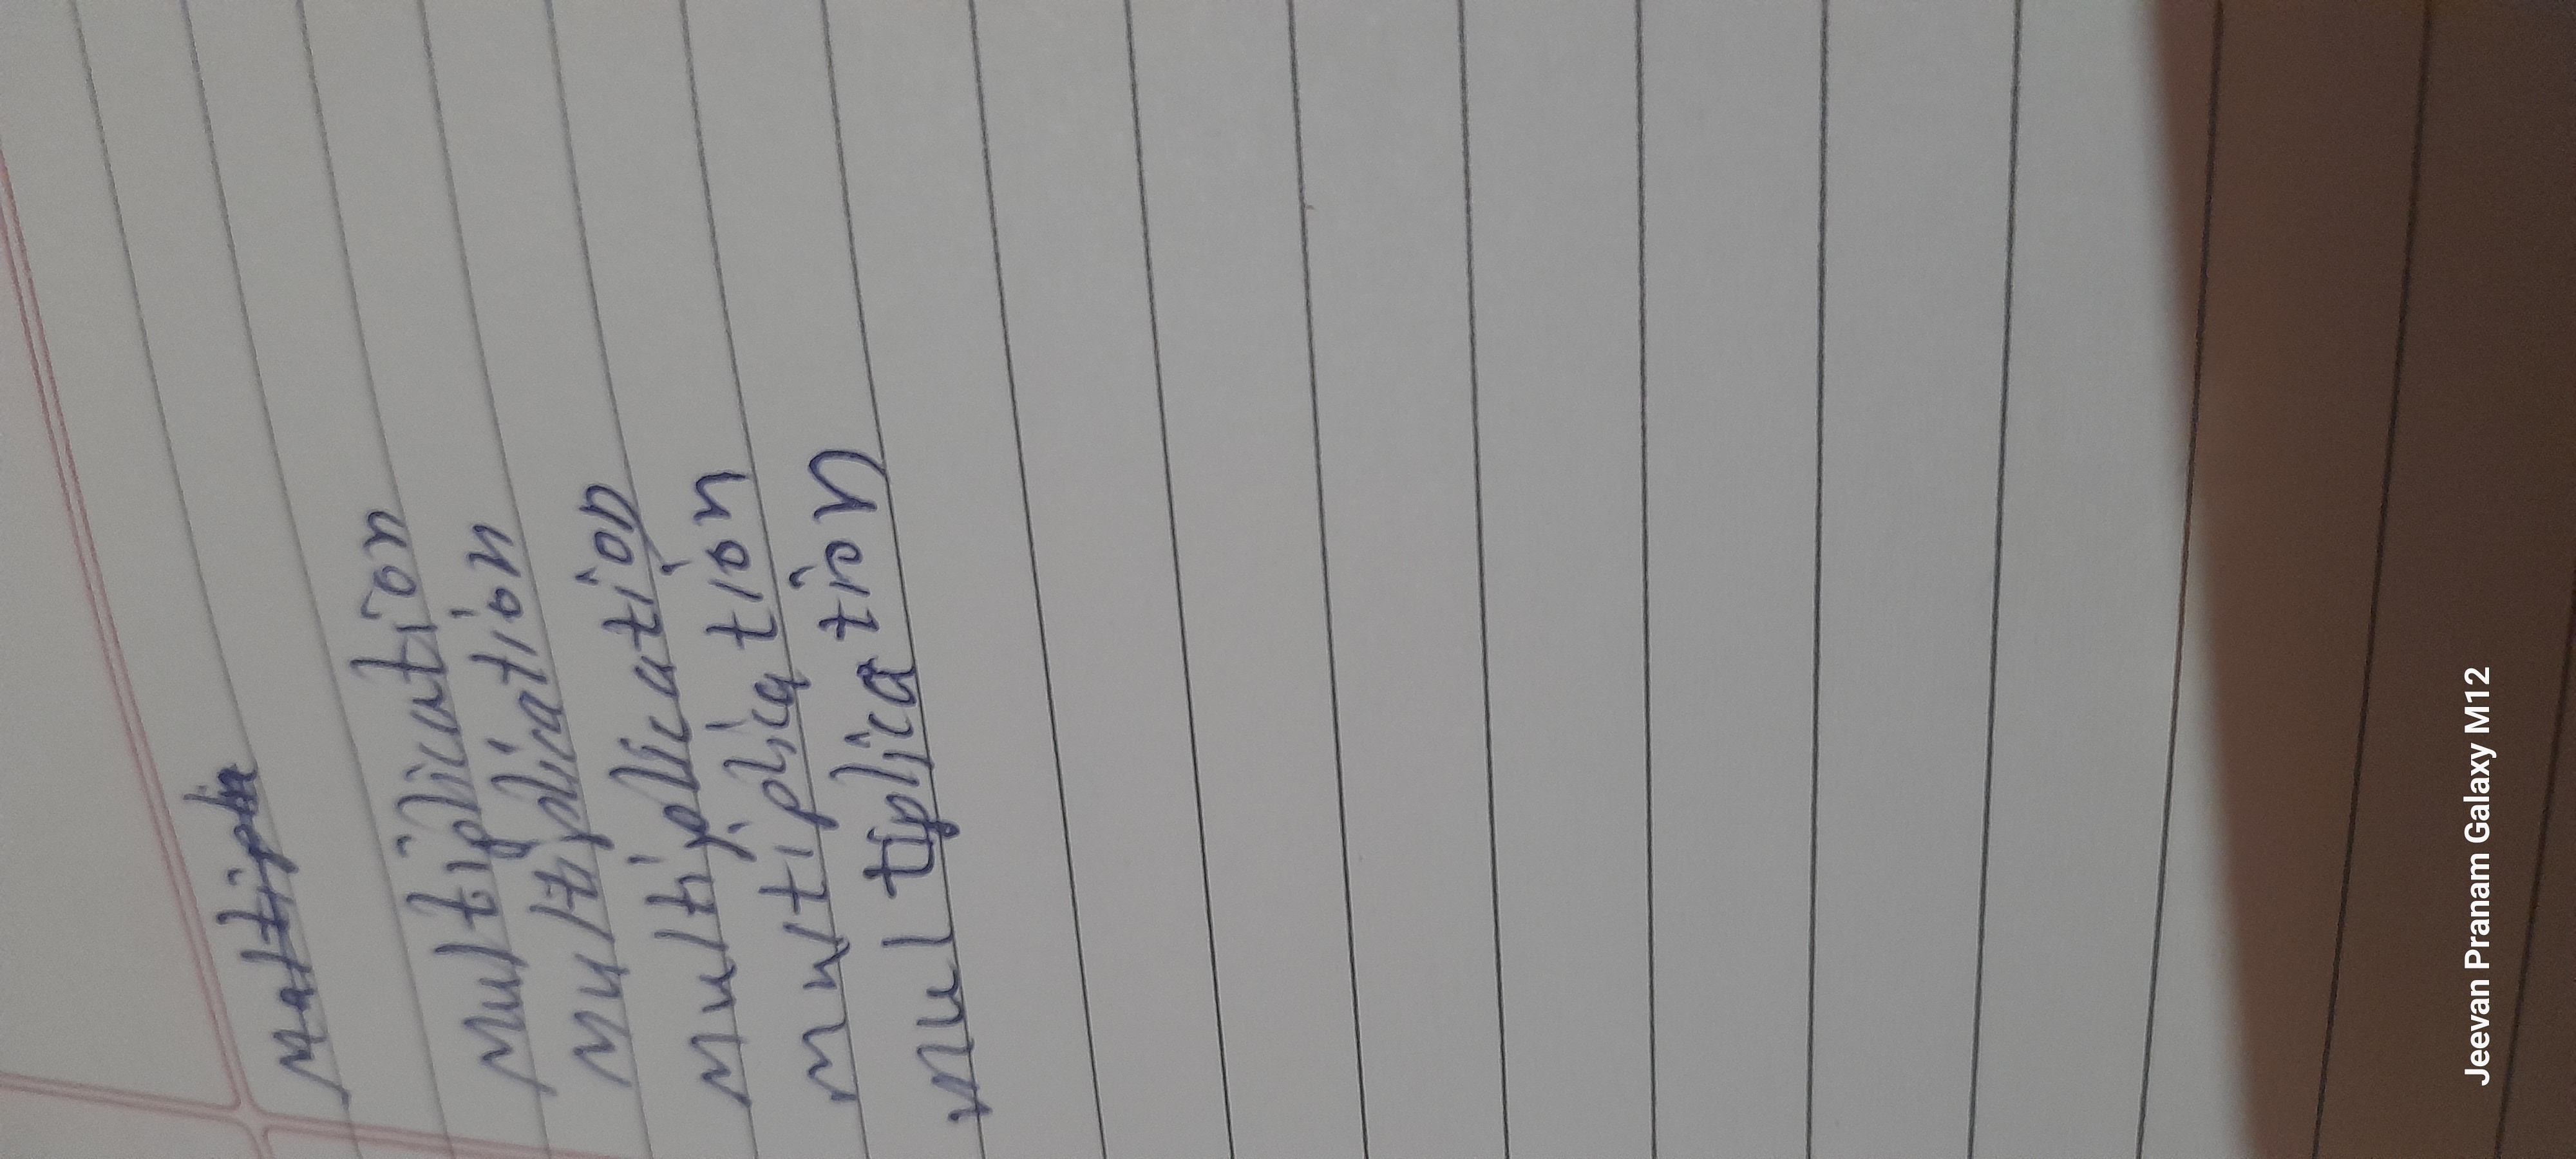 Multiplication
Multiplication
Multiplication
Multiplication
Multiplication
Jeevan Pranam Galaxy M12